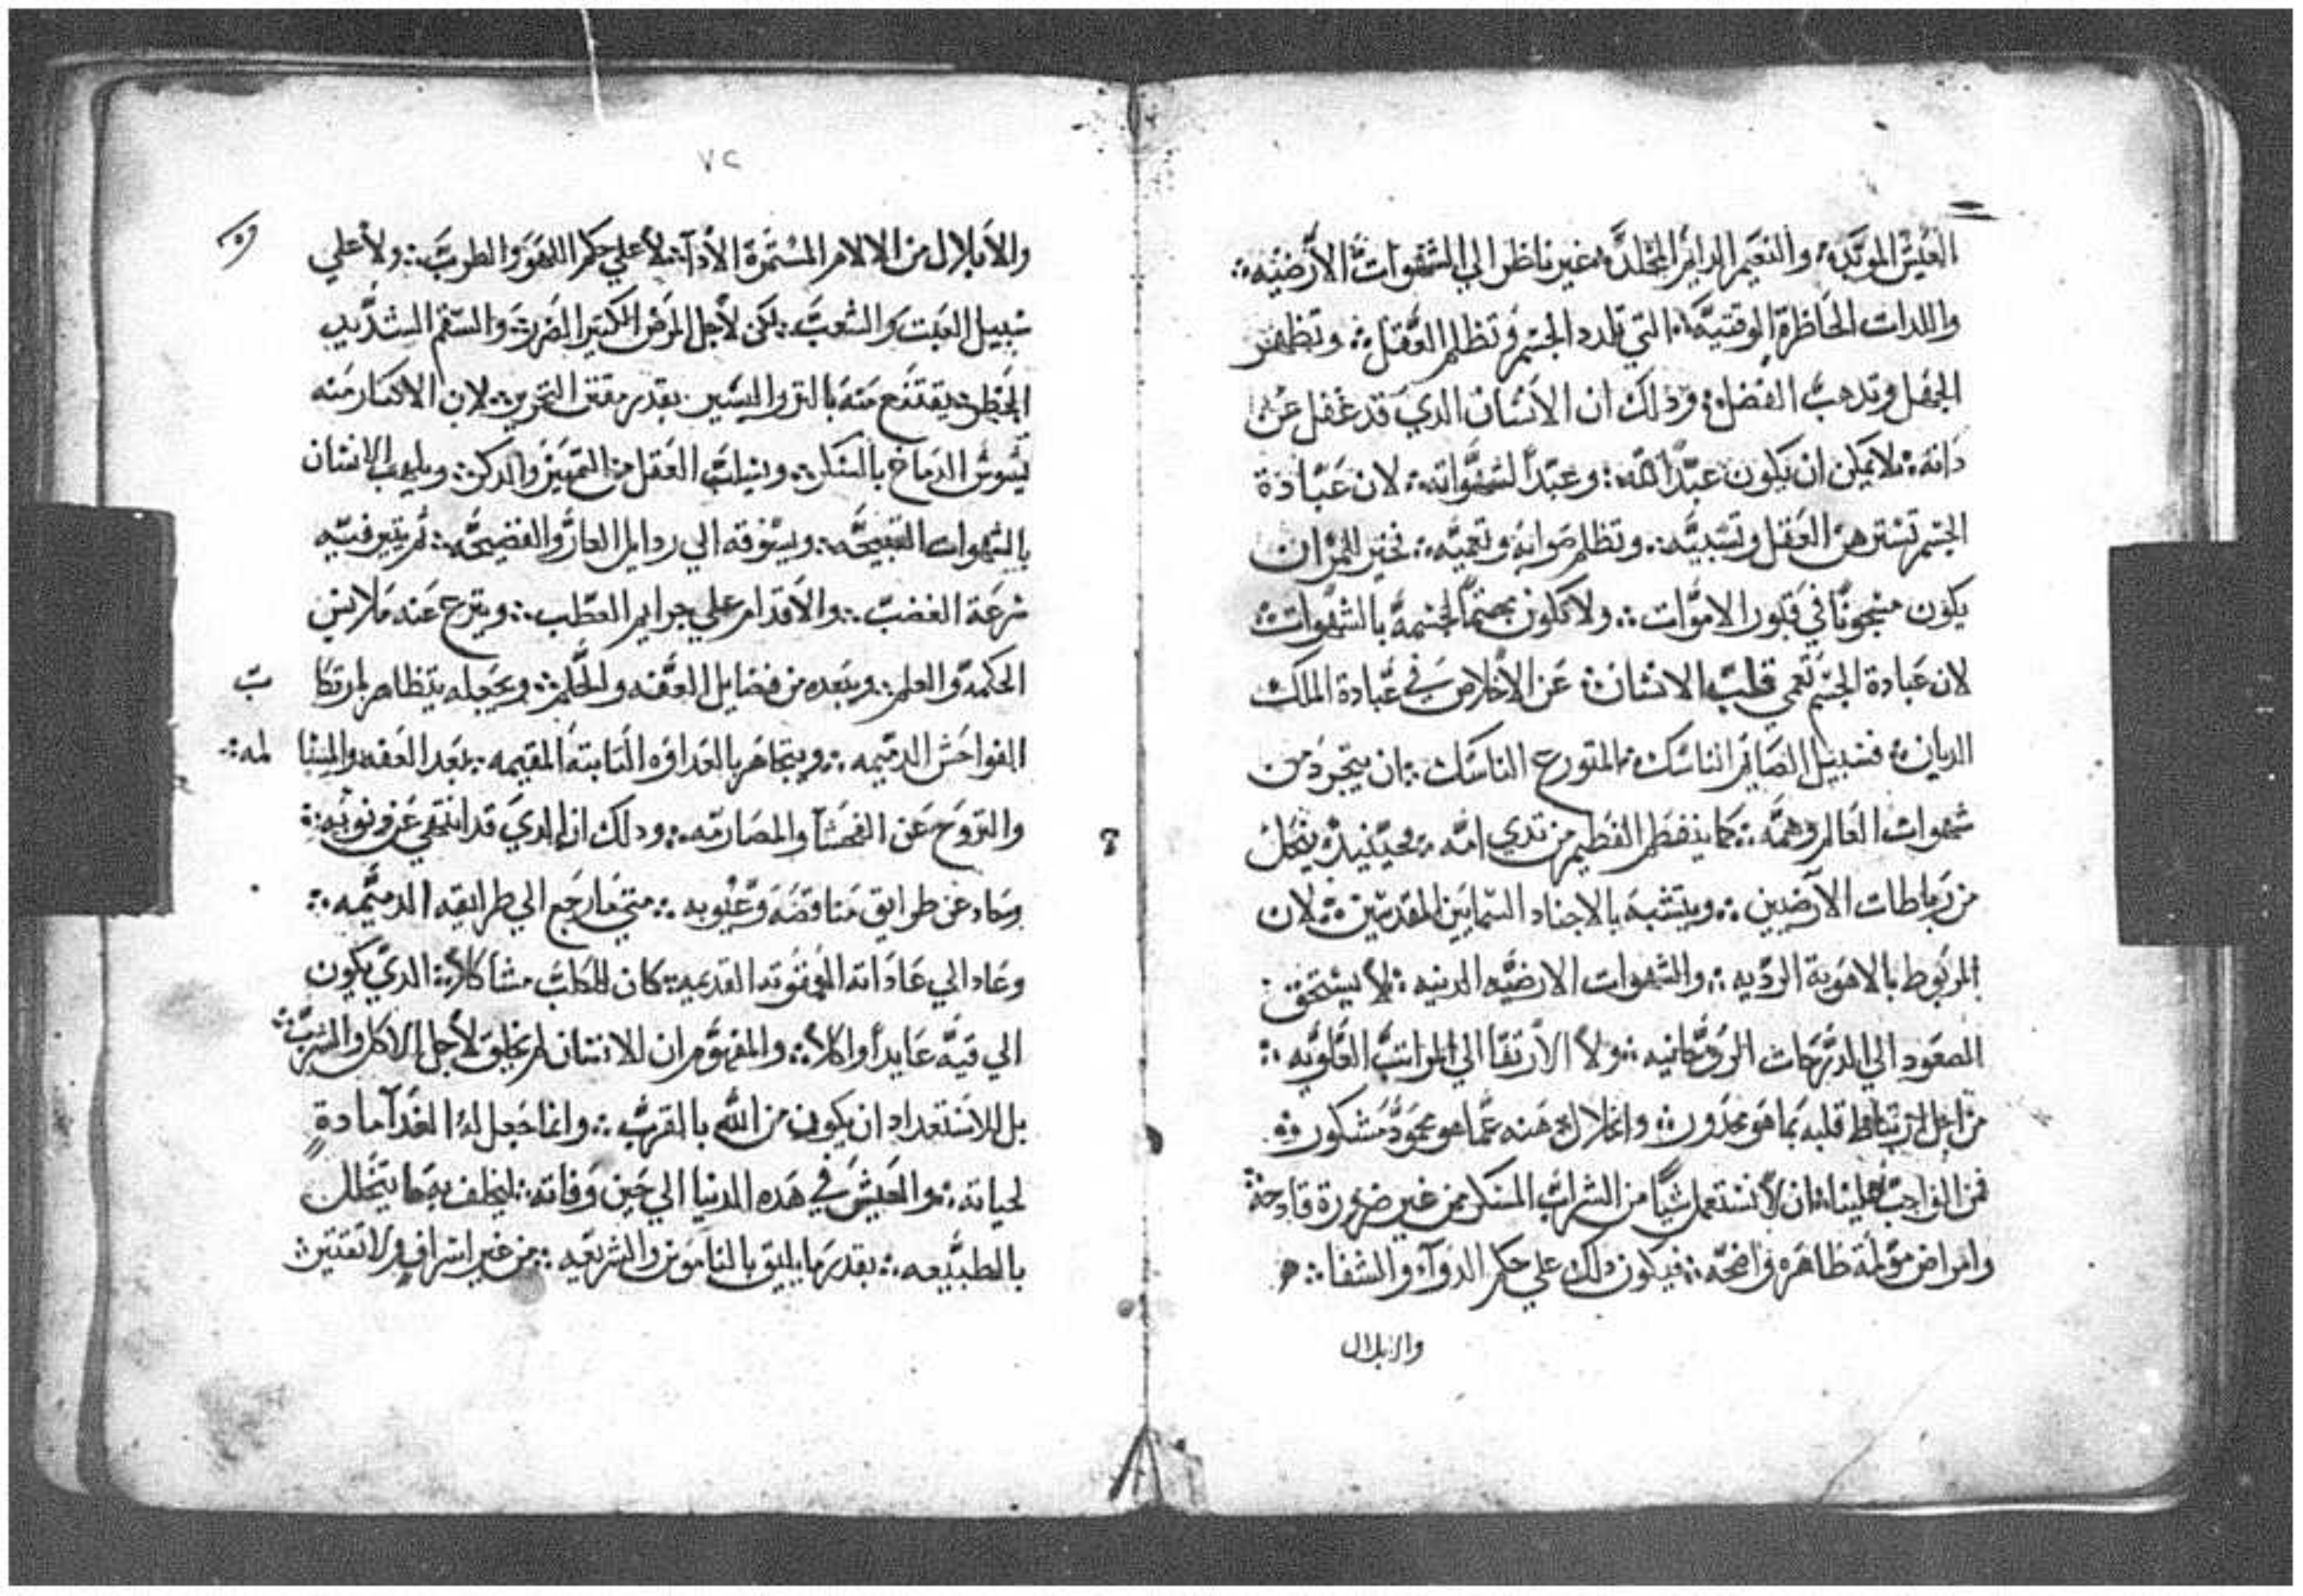 العيش الموبد؛ والنعيم الدايم المخلد؛ غير ناظر الي الشهوات الأرضيه؛
واللدات الحاظرة الوقتيه؛ التي تلدد الجسم وتظلم العقل؛ وتظهر
الجهل وتدهب الفضل؛ ودلك ان الانسان الدي قد غفل عن
داته؛ لا يمكن ان يكون عبدًا لله؛ وعبدًا لشهواته؛ لان عبادة
الجسم تسترهن العقل وتسبيه؛ وتظلم صوابه وتعميه؛
يكون مسجونًا في قبور الاموات؛ ولا تكون مهتمًا لجسمه بالشهوات؛
لان عبادة الجسم تعمي قلب الانسان؛ عن الأخلاص في عبادة الملك
الديان؛ فسبيل الصايم الناسك؛ المتورع الناسك؛ ان يتجرد من
شهوات العالم وهمه؛ كما ينفطم الفطيم من تدي امه؛ فحينيد
من رباطات الارضيين؛ ويتشبه بالاجناد السمايين المقدسين؛ لان
المربوط بالاهوية الرديه؛ والشهوات الارضيه الدنيه؛ لا يستحق
الصعود الي الدرجات الروحانيه؛ ولا الأرتقا الي المراتب العلويه؛
من اجل ارتباط قلبه بما هو محدور؛ وانحلال دهنه عما هو محمود مشكور؛
فمن الواجب علينا؛ ان لا نستعمل شيًا من الشراب المسكر من غير ضرورة فادحة؛
وامراض مولمة ظاهره واضحه؛ فيكون دلك علي حكم الدوآ؛ والشفا؛
والابلال
٧٢
والأبلال من الالام المستمرة الأدآ؛ لا علي حكم اللهو والطرب؛ ولا علي
سبيل العبت والشعب؛ لكن لأجل المرض الكتير الضرر؛ والسقم الشديد
الخطر؛ يقتنع منه بالنزر اليسير بقدر مقتني التحرير؛ لان الاكتار منه
يشوش الدماغ بالسكر؛ ويسلب العقل من التمييز والدكر؛ ويلهب الانسان
بالشهوات القبيحه؛ ويسوقه الي ردايل العار والفضيحه؛ تم يتير فيه
سرعة الغضب؛ والأقدام علي جراير العطب؛ وينزع عنه ملابس
الحكمه والعلم؛ ويبعده من فضايل العفه والحلم؛ ويجعله يتظاهر بارتكا ب
الفواحش الدميمه؛ ويتجاهر بالعداوه التابته المقيمه؛ بعد العفه والمسا لمه؛
والنزوح عن الفحشآ والمصارمه؛ ودلك ان الدي قد انتهي عن دنوبه؛
وحاد عن طرايق مناقضه وعيوبه؛ متي ما رجع الي طرايقه الدميمه؛
وعاد الي عاداته الممقوته القديمه؛ كان للكلب مشاكلاً؛ الدي يكون
الي قيه عايدًا واكلاً؛ والمفهوم ان الانسان لم يخلق لأجل الاكل والشرب؛
بل للاستعداد ان يكون من الله بالقرب؛ وانما جعل له الغدآ مادة
لحياته؛ والعيش في هده الدنيا الي حين وفاته؛ ليخلف به ما يتحلل
بالطبيعه؛ بقدر ما يليق بالناموس والشريعه؛ من غير اسراف ولا تقتير؛